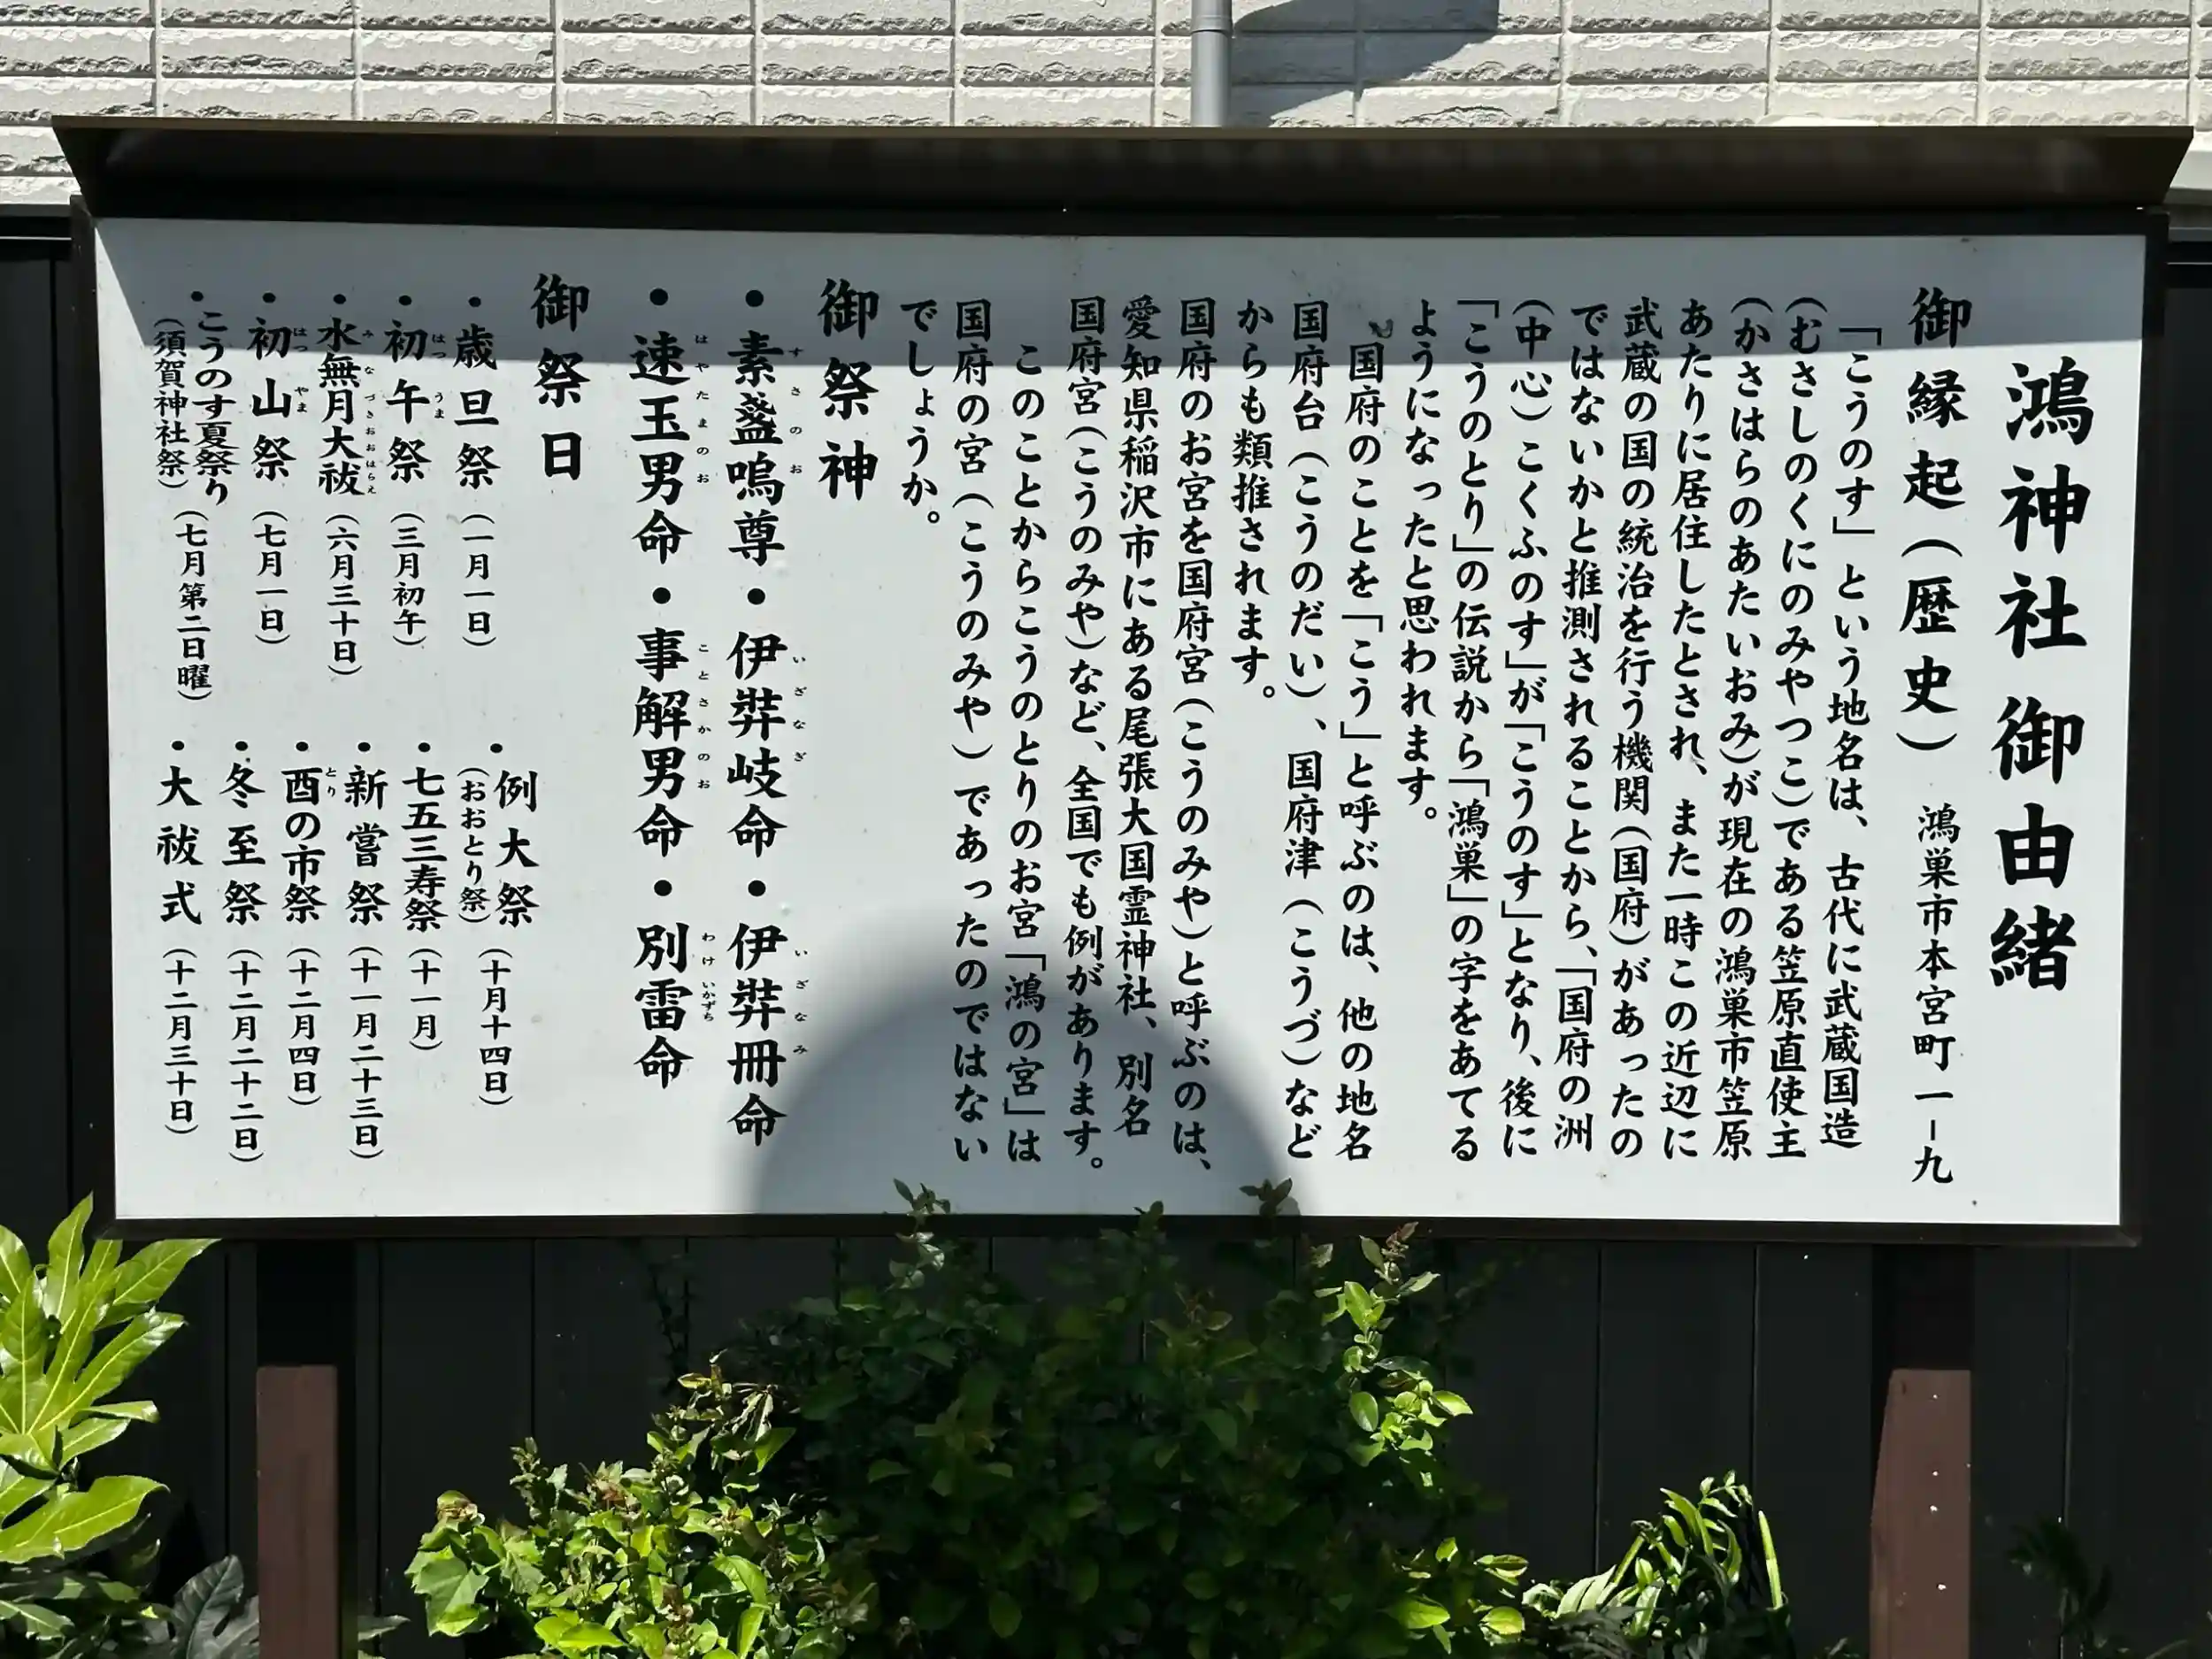 鴻神社 御由緒
御縁起(歴史) 鴻巣市本宮町一-九
「こうのす」という地名は、古代に武蔵国造
(むさしのくにのみやつこ)である笠原直使主
(かさはらのあたいおみ)が現在の鴻巣市笠原
あたりに居住したとされ、また一時この近辺に
武蔵の国の統治を行う機関(国府)があったの
ではないかと推測されることから、「国府の洲
(中心)こくふのす」が「こうのす」となり、後に
「こうのとり」の伝説から「鴻巣」の字をあてる
ようになったと思われます。
国府のことを「こう」と呼ぶのは、他の地名
国府台(こうのだい)、国府津(こうづ)など
からも類推されます。
国府のお宮を国府宮(こうのみや)と呼ぶのは、
愛知県稲沢市にある尾張大国霊神社、別名
国府宮(こうのみや)など、全国でも例があります。
このことからこうのとりのお宮「鴻の宮」は
国府の宮(こうのみや)であったのではない
でしょうか。
御祭神
・素盞嗚尊・伊弉岐命・伊弉冊命
すさのお いざなぎ いざなみ
・速玉男命・事解男命・別雷命
はやたまのお ことさかのお わけいかずち
御祭日
・歳旦祭(一月一日)
・初午祭(三月初午)
はつうま
・水無月大祓(六月三十日)
みなづきおおはらえ
・初山祭(七月一日)
はつやま
・こうのす夏祭り
(須賀神社祭)(七月第二日曜)
・例大祭
(おおとり祭)(十月十四日)
・七五三寿祭(十一月)
・新嘗祭(十一月二十三日)
・酉の市祭(十二月四日)
とり
・冬至祭(十二月二十二日)
・大祓式(十二月三十日)